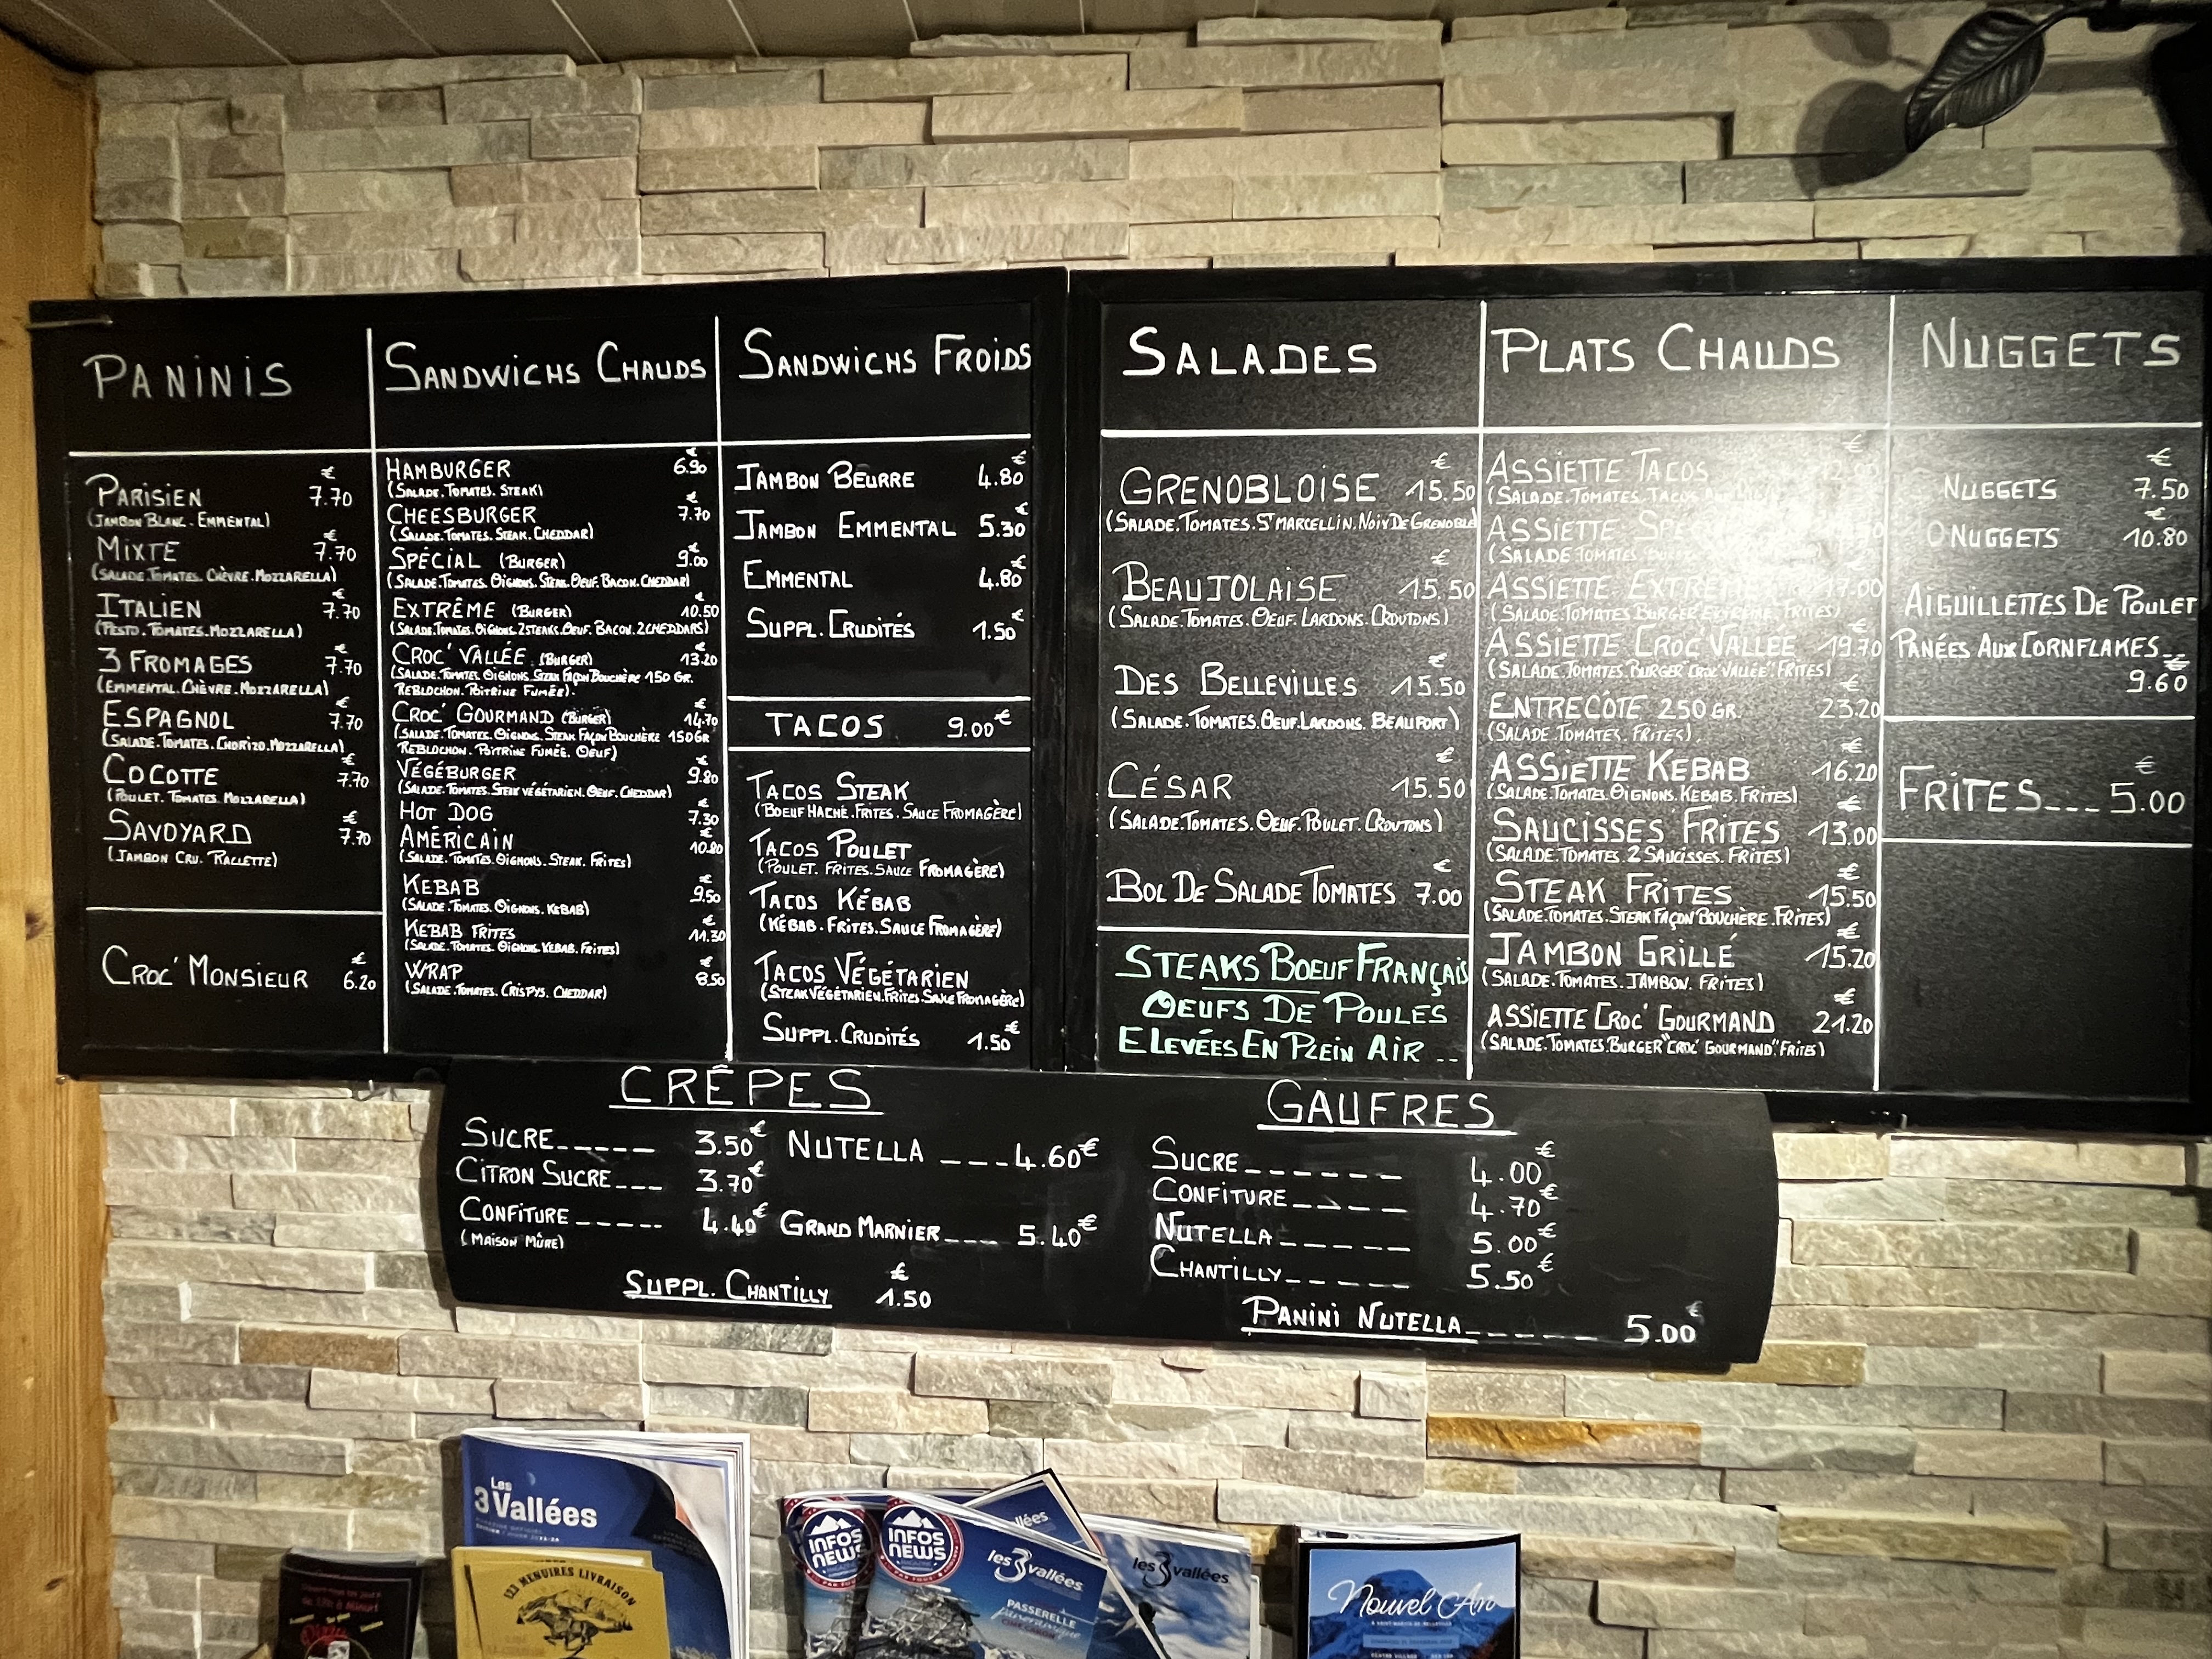 PANINIS
€
PARISIEN 7.70
(JAMBON BLANC. EMMENTAL)
€
MIXTE 7.70
(SALADE.TOMATES.CHÈVRE.MOZZARELLA)
€
ITALIEN 7.70
(PESTO.TOMATES.MOZZARELLA)
€
3 FROMAGES 7.70
(EMMENTAL.CHÈVRE.MOZZARELLA)
€
ESPAGNOL 7.70
(SALADE.TOMATES.CHORIZO.MOZZARELLA)
€
COCOTTE 7.70
(POULET.TOMATES.MOZZARELLA)
€
SAVOYARD 7.70
(JAMBON CRU. RACLETTE)
€
CROC' MONSIEUR 6.20
SANDWICHS CHAUDS
€
HAMBURGER 6.90
(SALADE.TOMATES.STEAK)
€
CHEESBURGER 7.70
(SALADE.TOMATES.STEAK.CHEDDAR)
€
SPÉCIAL (BURGER) 9.00
(SALADE.TOMATES.OIGNONS.STEAK.OEUF.BACON.CHEDDAR)
€
EXTRÊME (BURGER) 10.50
(SALADE.TOMATES.OIGNONS.2STEAKS.OEUF.BACON.2CHEDDARS)
€
CROC' VALLÉE (BURGER) 13.20
(SALADE.TOMATES.OIGNONS.STEAK FAÇON BOUCHÈRE 150 GR.
REBLOCHON.POITRINE FUMÉE).
€
CROC' GOURMAND (BURGER) 14.70
(SALADE.TOMATES.OIGNONS.STEAK FAÇON BOUCHÈRE 150GR
REBLOCHON.POITRINE FUMÉE.OEUF)
€
VÉGÉBURGER 9.80
(SALADE.TOMATES.STEAK VÉGÉTARIEN.OEUF.CHEDDAR)
€
HOT DOG 7.30
€
AMÉRICAIN 10.80
(SALADE.TOMATES.OIGNONS.STEAK.FRITES)
€
KEBAB 9.50
(SALADE.TOMATES.OIGNONS.KEBAB)
€
KEBAB FRITES 11.30
(SALADE.TOMATES.OIGNONS.KEBAB.FRITES)
€
WRAP 8.50
(SALADE.TOMATES.CRISPYS.CHEDDAR)
SANDWICHS FROIDS
JAMBON BEURRE 4.80€
JAMBON EMMENTAL 5.30€
EMMENTAL 4.80€
SUPPL.CRUDITÉS 1.50€
TACOS 9.00€
TACOS STEAK
(BOEUF HACHÉ.FRITES.SAUCE FROMAGÈRE)
TACOS POULET
(POULET.FRITES.SAUCE FROMAGÈRE)
TACOS KÉBAB
(KÉBAB.FRITES.SAUCE FROMAGÈRE)
TACOS VÉGÉTARIEN
(STEAK VÉGÉTARIEN.FRITES.SAUCE FROMAGÈRE)
SUPPL.CRUDITÉS 1.50€
SALADES
€
GRENOBLOISE 15.50
(SALADE.TOMATES.ST MARCELLIN.NOIX DE GRENOBLE
€
BEAUJOLAISE 15.50
(SALADE.TOMATES.OEUF.LARDONS.CROUTONS)
€
DES BELLEVILLES 15.50
(SALADE.TOMATES.OEUF.LARDONS.BEAUFORT)
€
CÉSAR 15.50
(SALADE.TOMATES.OEUF.POULET.CROUTONS)
€
BOL DE SALADE TOMATES 7.00
STEAKS BOEUF FRANÇAIS
OEUFS DE POULES
ELEVÉES EN PLEIN AIR ..
PLATS CHAUDS
€
ASSIETTE TACOS
(SALADE.TOMATES.TACOS
ASSIETTE
(SALADE.TOMATES.
ASSIETTE EXTRÊME 17.00
(SALADE.TOMATES.BURGER EXTRÊME.FRITES)
€
ASSIETTE CROC'VALLÉE 19.70
(SALADE.TOMATES.BURGER"CROC'VALLÉE".FRITES)
€
ENTRECÔTE 250 GR. 23.20
(SALADE.TOMATES.FRITES).
€
ASSIETTE KEBAB 16.20
(SALADE.TOMATES.OIGNONS.KEBAB.FRITES)
€
SAUCISSES FRITES 13.00
(SALADE.TOMATES.2 SAUCISSES.FRITES)
€
STEAK FRITES 15.50
(SALADE.TOMATES.STEAK FAÇON BOUCHÈRE.FRITES)
€
JAMBON GRILLÉ 15.20
(SALADE.TOMATES.JAMBON.FRITES)
€
ASSIETTE CROC' GOURMAND 21.20
(SALADE.TOMATES.BURGER"CROC' GOURMAND".FRITES)
NUGGETS
€
NUGGETS 7.50
€
NUGGETS 10.80
AIGUILLETTES DE POULET
PANÉES AUX CORNFLAKES...
€
9.60
€
FRITES___ 5.00
CRÊPES
SUCRE_____ 3.50€ NUTELLA ___4.60€
CITRON SUCRE___ 3.70€
CONFITURE_____ 4.40€ GRAND MARNIER___ 5.40€
(MAISON MÛRE)
€
SUPPL. CHANTILLY 1.50
GAUFRES
SUCRE______ 4.00€
CONFITURE____ 4.70€
NUTELLA_____ 5.00€
CHANTILLY_____ 5.50€
PANINI NUTELLA_____ 5.00€
Les
3 Vallées
123 MENUIRES LIVRAISON
INFOS
NEWS
INFOS
NEWS
les 3 vallées
PASSERELLE
panoramique
les 3 vallées
Nouvel An